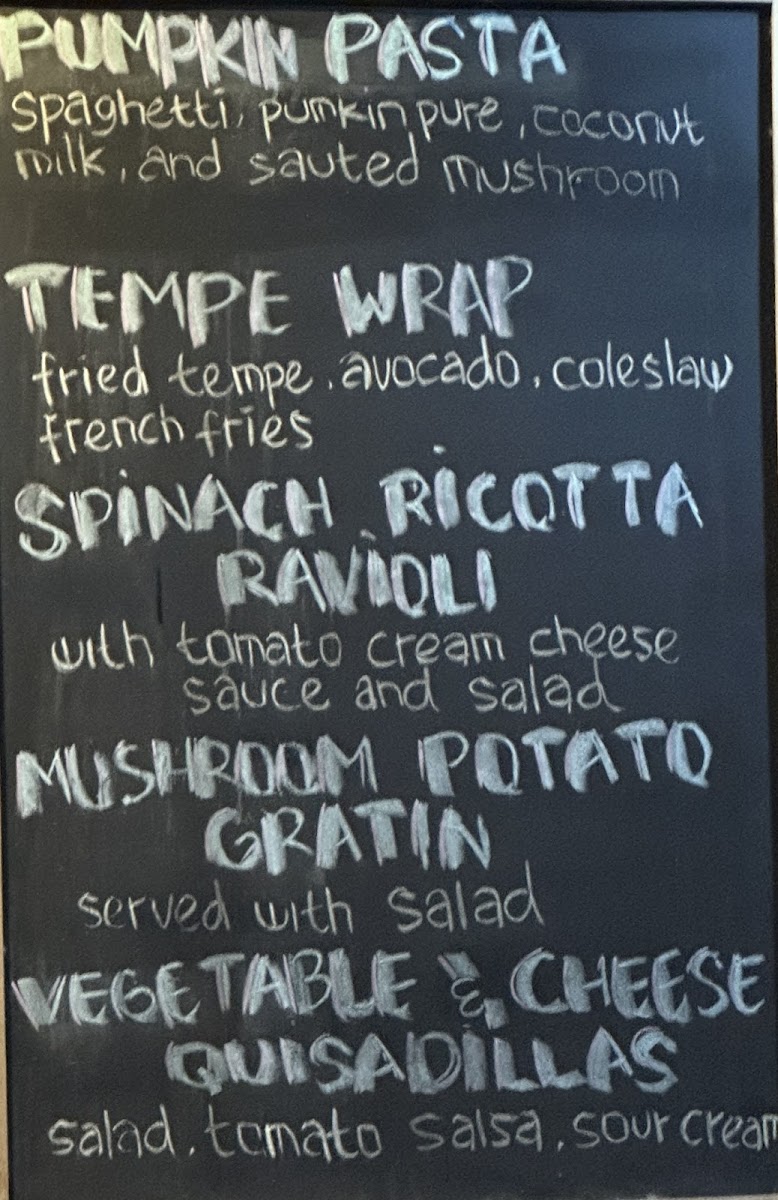 PUMPKIN PASTA
spaghetti, pumkin pure, coconut
milk, and sauted mushroom
TEMPE WRAP
fried tempe, avocado, coleslaw
french fries
SPINACH RICOTTA
RAVIOLI
with tomato cream cheese
sauce and salad
MUSHROOM POTATO
GRATIN
served with salad
VEGETABLE & CHEESE
QUISADILLAS
salad, tomato salsa, sour cream